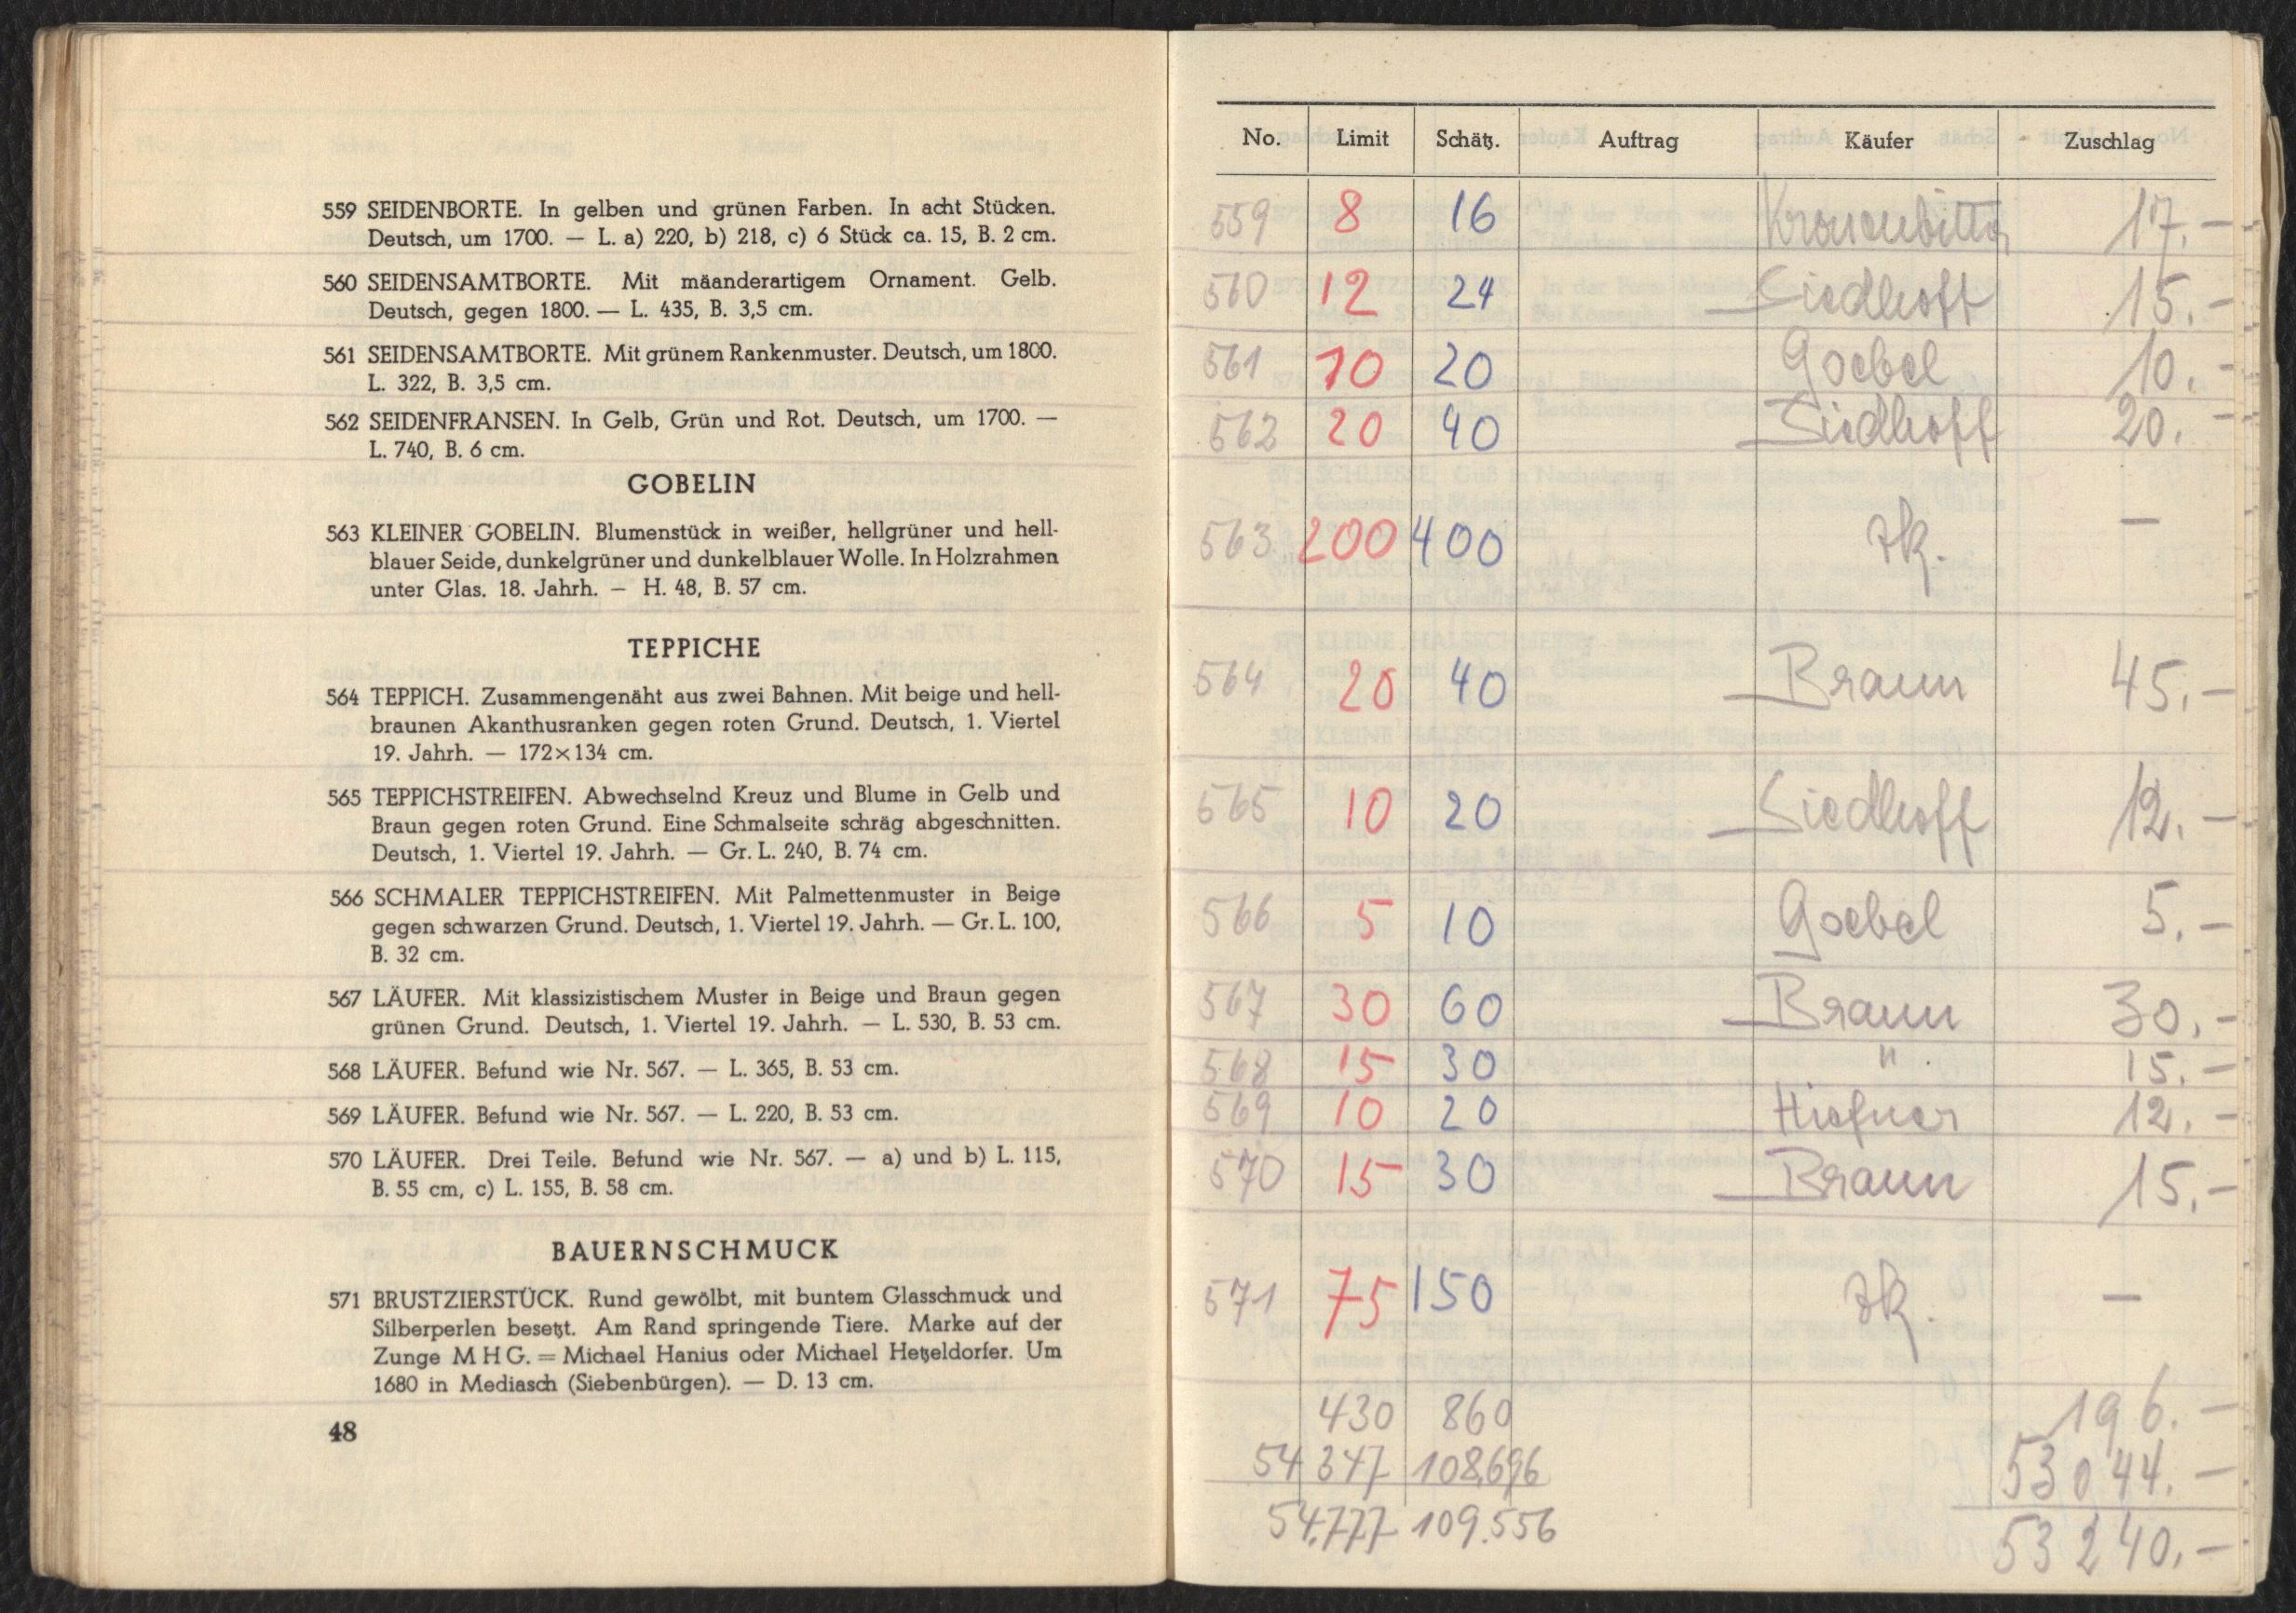 559 SEIDENBORTE. In gelben und grünen Farben. In acht Stücken.
Deutsch, um 1700. — L. a) 220, b) 218, c) 6 Stück ca. 15, B. 2 cm.
560 SEIDENSAMTBORTE. Mit mäanderartigem Ornament. Gelb.
Deutsch, gegen 1800. — L. 435, B. 3,5 cm.
561 SEIDENSAMTBORTE. Mit grünem Rankenmuster. Deutsch, um 1800.
L. 322, B. 3,5 cm.
562 SEIDENFRANSEN. In Gelb, Grün und Rot. Deutsch, um 1700. —
L. 740, B. 6 cm.
GOBELIN
563 KLEINER GOBELIN. Blumenstück in weißer, hellgrüner und hell-
blauer Seide, dunkelgrüner und dunkelblauer Wolle. In Holzrahmen
unter Glas. 18. Jahrh. — H. 48, B. 57 cm.
TEPPICHE
564 TEPPICH. Zusammengenäht aus zwei Bahnen. Mit beige und hell-
braunen Akanthusranken gegen roten Grund. Deutsch, 1. Viertel
19. Jahrh. — 172×134 cm.
565 TEPPICHSTREIFEN. Abwechselnd Kreuz und Blume in Gelb und
Braun gegen roten Grund. Eine Schmalseite schräg abgeschnitten.
Deutsch, 1. Viertel 19. Jahrh. — Gr. L. 240, B. 74 cm.
566 SCHMALER TEPPICHSTREIFEN. Mit Palmettenmuster in Beige
gegen schwarzen Grund. Deutsch, 1. Viertel 19. Jahrh. — Gr. L. 100,
B. 32 cm.
567 LÄUFER. Mit klassizistischem Muster in Beige und Braun gegen
grünen Grund. Deutsch, 1. Viertel 19. Jahrh. — L. 530, B. 53 cm.
568 LÄUFER. Befund wie Nr. 567. — L. 365, B. 53 cm.
569 LÄUFER. Befund wie Nr. 567. — L. 220, B. 53 cm.
570 LÄUFER. Drei Teile. Befund wie Nr. 567. — a) und b) L. 115,
B. 55 cm, c) L. 155, B. 58 cm.
BAUERNSCHMUCK
571 BRUSTZIERSTÜCK. Rund gewölbt, mit buntem Glasschmuck und
Silberperlen besetzt. Am Rand springende Tiere. Marke auf der
Zunge M H G. = Michael Hanius oder Michael Hetzeldorfer. Um
1680 in Mediasch (Siebenbürgen). — D. 13 cm.
48
No. Limit Schätz. Auftrag Käufer Zuschlag
559 8 16 17.–
560 12 24 Siedhoff 15.–
561 10 20 Goebel 10.–
562 20 40 Siedhoff 20.–
563 200 400 –
564 20 40 Braun 45.–
565 10 20 Siedhoff 12.–
566 5 10 Goebel 5.–
567 30 60 Braun 30.–
568 15 30 " 15.–
569 10 20 12.–
570 15 30 Braun 15.–
571 75 150 –
430 860 196.–
54347 108.696 53044.–
54.777 109.556 53240.–